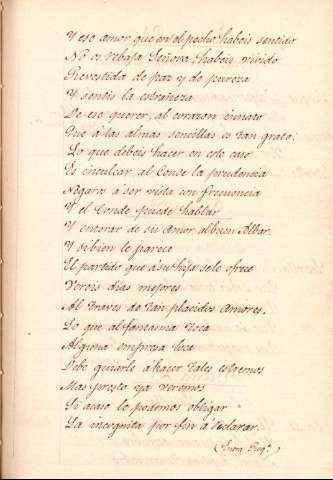 Y ese amor que en el pecho habeis sentido
No os rebaja Señora; habeis vivido
Revestida de paz y de pureza
Y sentis la estrañeza
De ese querer, al corazon innato
Que á las almas sencillas es tan grato;
Lo que debeis hacer en este caso
Es inculcar al Conde la prudencia
Negaros á ser vista con frecuencia
Y el Conde puede hablar
Y enterar de su amor, al buen Albar.
Y si bien le parece
El partido que á su hija se le ofrece
Vereis dias mejores
Al traves de tan placidos amores.
Lo que al fantasma toca
Alguna empresa loca
Debe guiarle á hacer tales estremos
Mas presto ya veremos
Si acaso le podemos obligar
La incognita por fin á declarar.